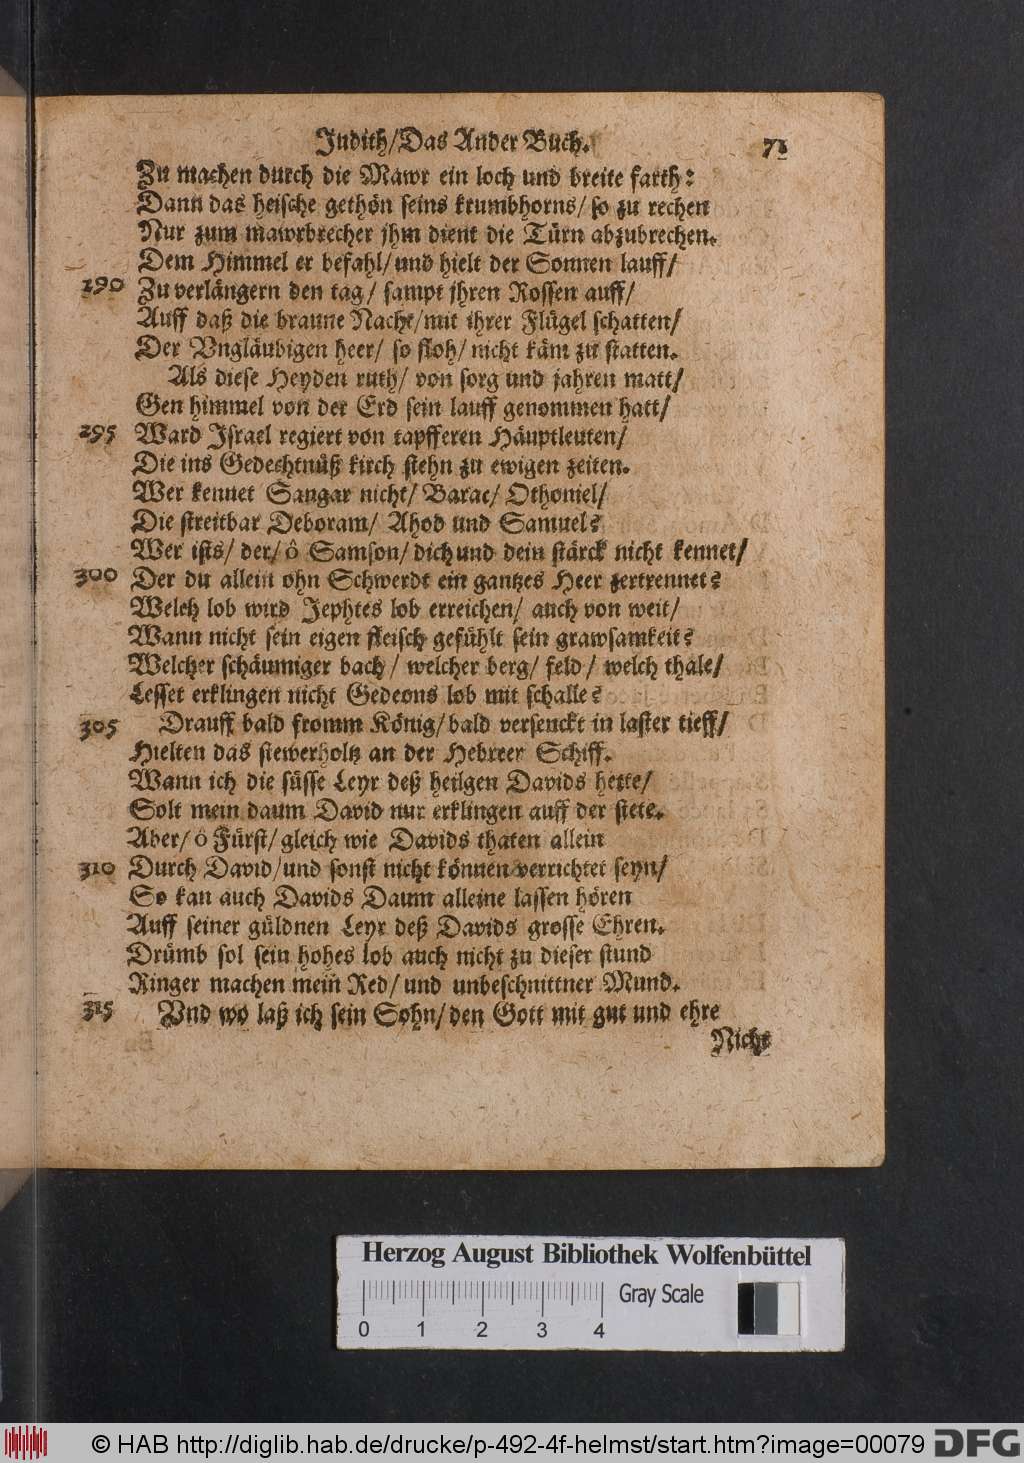 Judith/Das Ander Buch. 71
Zu machen durch die Mawr ein loch und breite farth:
Dann das heische gethön seins krumbhorns/ so zu rechen
Nur zum mawrbrecher jhm dient die Türn abzubrechen.
Dem Himmel er befahl/und hielt der Sonnen lauff/
290 Zu verlängern den tag/ sampt jhren Rossen auff/
Auff daß die braune Nacht/mit ihrer Flügel schatten/
Der Vngläubigen heer/ so floh/ nicht käm zu statten.
Als diese Heyden ruth/ von sorg und jahren matt/
Gen himmel von der Erd sein lauff genommen hatt/
295 Ward Israel regiert von tapfferen Häuptleuten/
Die ins Gedechtnüß kirch stehn zu ewigen zeiten.
Wer kennet Sangar nicht/ Barac/ Othoniel/
Die streitbar Deboram/ Ahod und Samuel?
Wer ists/ der/ ô Samson/ dich und dein stärck nicht kennet/
300 Der du allein ohn Schwerdt ein gantzes Heer zertrennet?
Welch lob wird Jephtes lob erreichen/ auch von weit/
Wann nicht sein eigen fleisch gefühlt sein grawsamkeit?
Welcher schäumiger bach/ welcher berg/ feld/ welch thale/
Lesset erklingen nicht Gedeons lob mit schalle?
305 Drauff bald fromm König/bald versenckt in laster tieff/
Hielten das stewerholtz an der Hebreer Schiff.
Wann ich die süsse Leyr deß heilgen Davids hette/
Solt mein daum David nur erklingen auff der stete.
Aber/ ô Fürst/ gleich wie Davids thaten allein
310 Durch David/und sonst nicht können verrichtet seyn/
So kan auch Davids Daum alleine lassen hören
Auff seiner güldnen Leyr deß Davids grosse Ehren.
Drümb sol sein hohes lob auch nicht zu dieser stund
Ringer machen mein Red/ und unbeschnittner Mund.
315 Vnd wo laß ich sein Sohn/ den Gott mit gut und ehre
Nicht
Herzog August Bibliothek Wolfenbüttel
Gray Scale
0 1 2 3 4
© HAB http://diglib.hab.de/drucke/p-492-4f-helmst/start.htm?image=00079 DFG